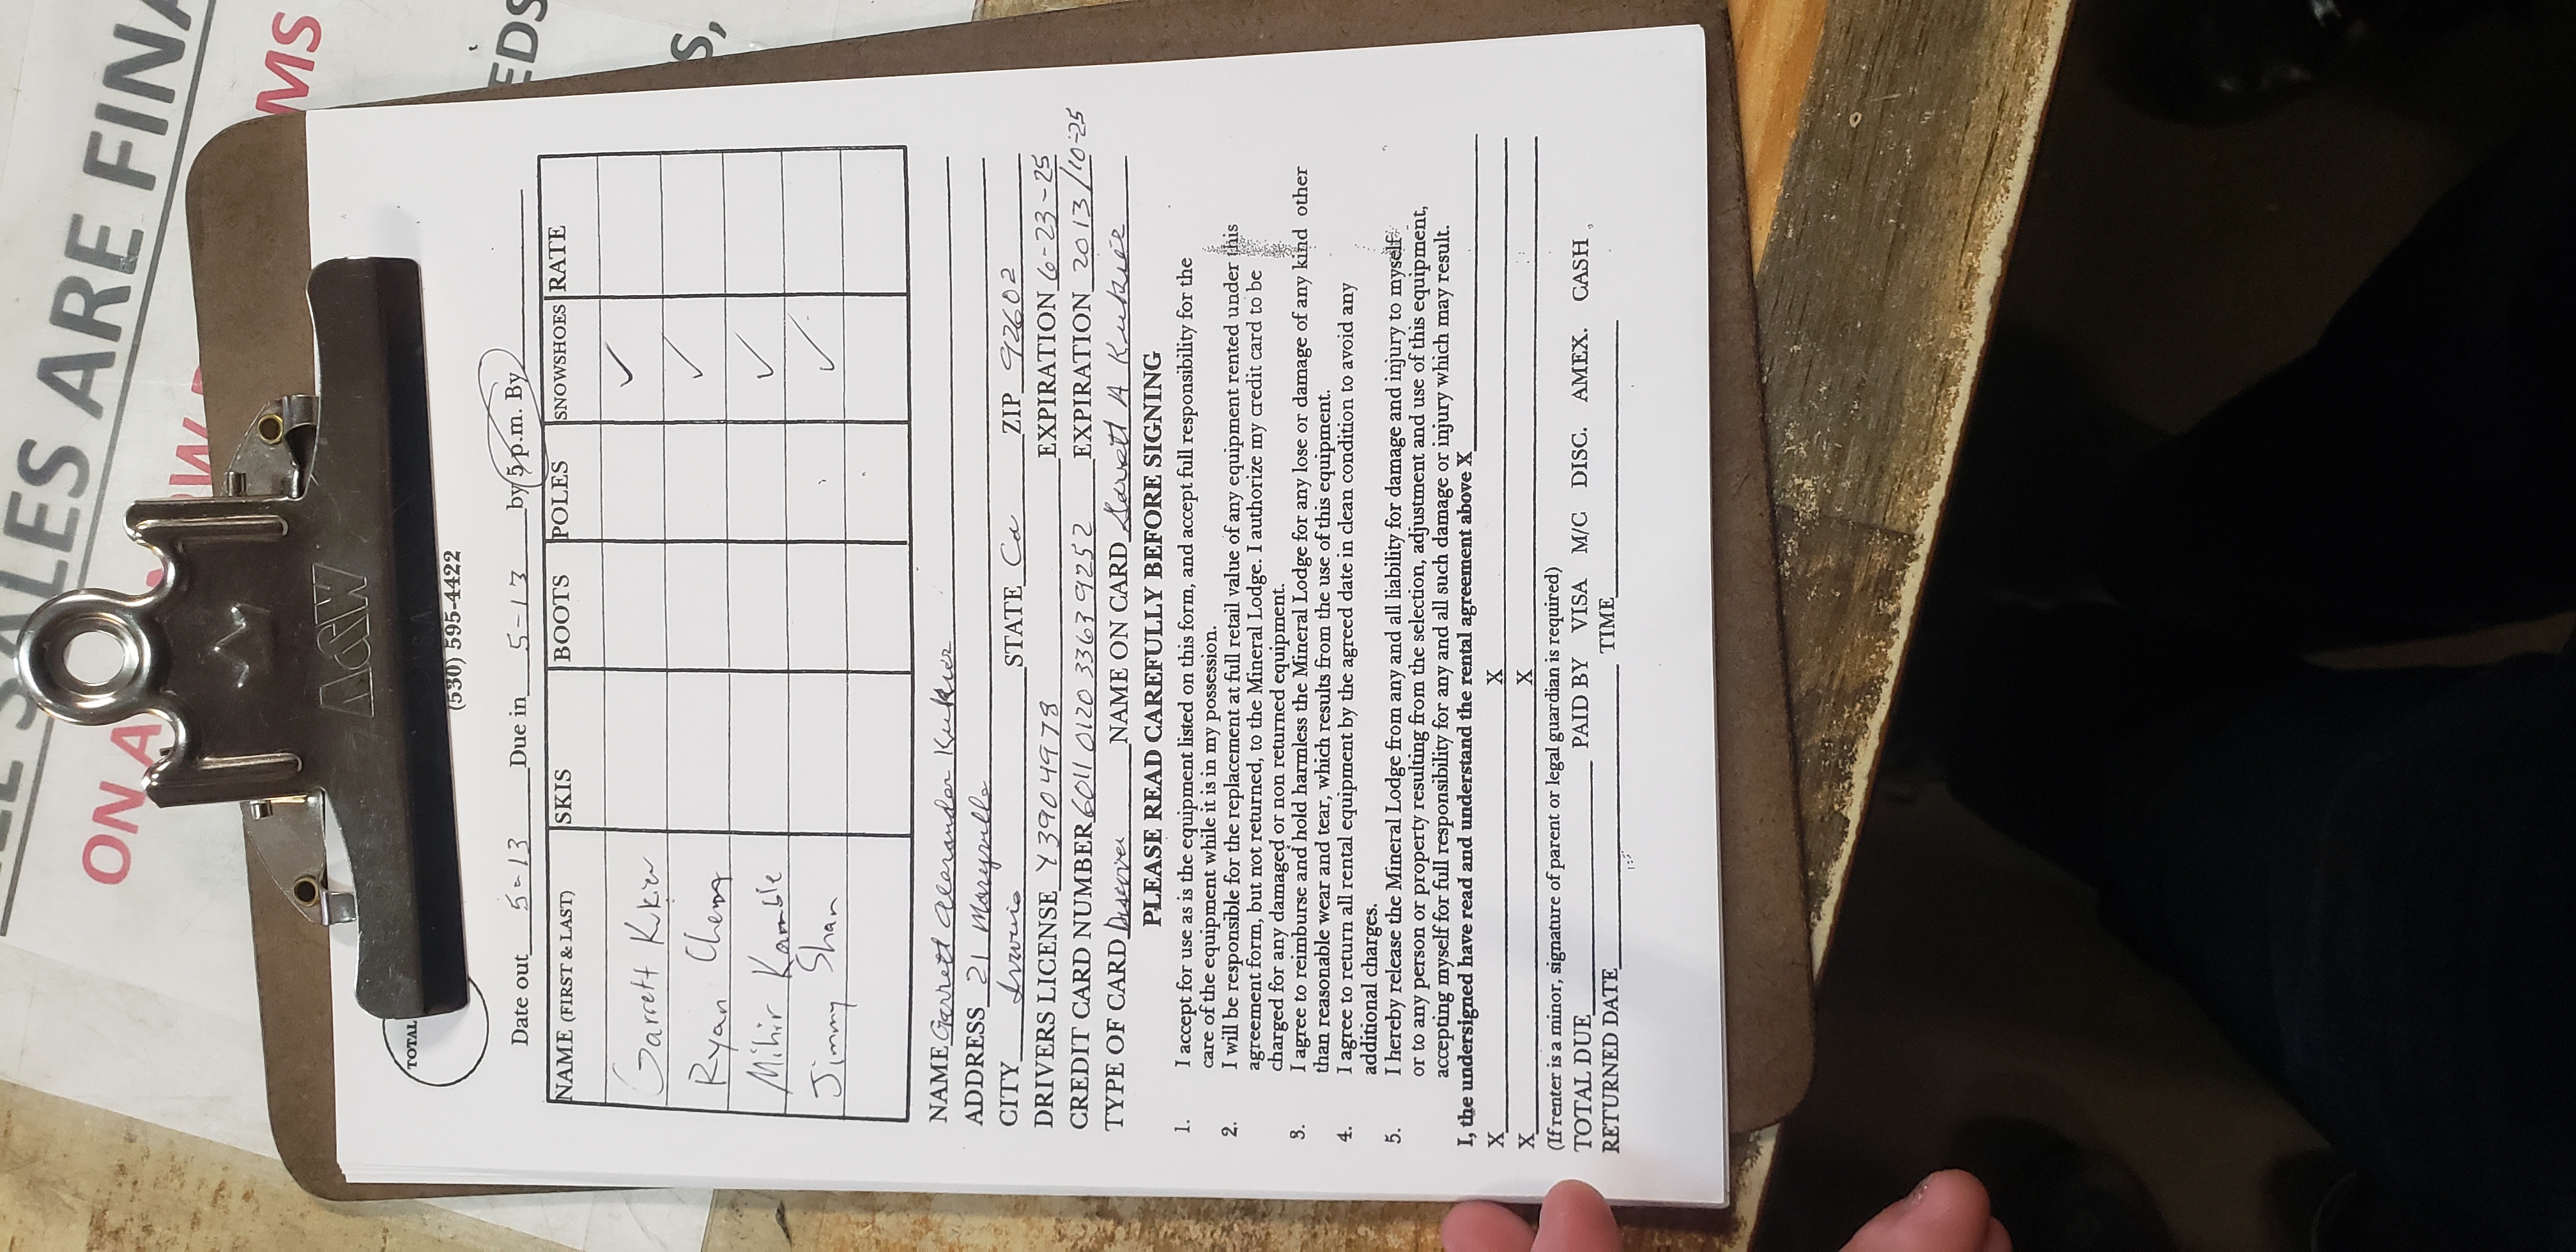 ALL SALES ARE FINAL
ON A
MS
EDS
S,
A&W
USA
TOTAL
(530) 595-4422
Date out 5-13 Due in 5-13 by 5 p.m. By
NAME (FIRST & LAST) SKIS BOOTS POLES SNOWSHOES RATE
Garrett Kukier ✓
Ryan Cheng ✓
Mihir Kamble ✓
Jimmy Shan ✓
NAME Garrett Alexander Kukier
ADDRESS 21 Maryville
CITY Irvine STATE Ca ZIP 92602
DRIVERS LICENSE [redacted] EXPIRATION 6-23-25
CREDIT CARD NUMBER [redacted] EXPIRATION [redacted]
TYPE OF CARD Discover NAME ON CARD Garrett A Kukier
PLEASE READ CAREFULLY BEFORE SIGNING
1. I accept for use as is the equipment listed on this form, and accept full responsibility for the
care of the equipment while it is in my possession.
2. I will be responsible for the replacement at full retail value of any equipment rented under this
agreement form, but not returned, to the Mineral Lodge. I authorize my credit card to be
charged for any damaged or non returned equipment.
3. I agree to reimburse and hold harmless the Mineral Lodge for any lose or damage of any kind other
than reasonable wear and tear, which results from the use of this equipment.
4. I agree to return all rental equipment by the agreed date in clean condition to avoid any
additional charges.
5. I hereby release the Mineral Lodge from any and all liability for damage and injury to myself
or to any person or property resulting from the selection, adjustment and use of this equipment,
accepting myself for full responsibility for any and all such damage or injury which may result.
I, the undersigned have read and understand the rental agreement above X
X X
X X
(If renter is a minor, signature of parent or legal guardian is required)
TOTAL DUE PAID BY VISA M/C DISC. AMEX. CASH
RETURNED DATE TIME